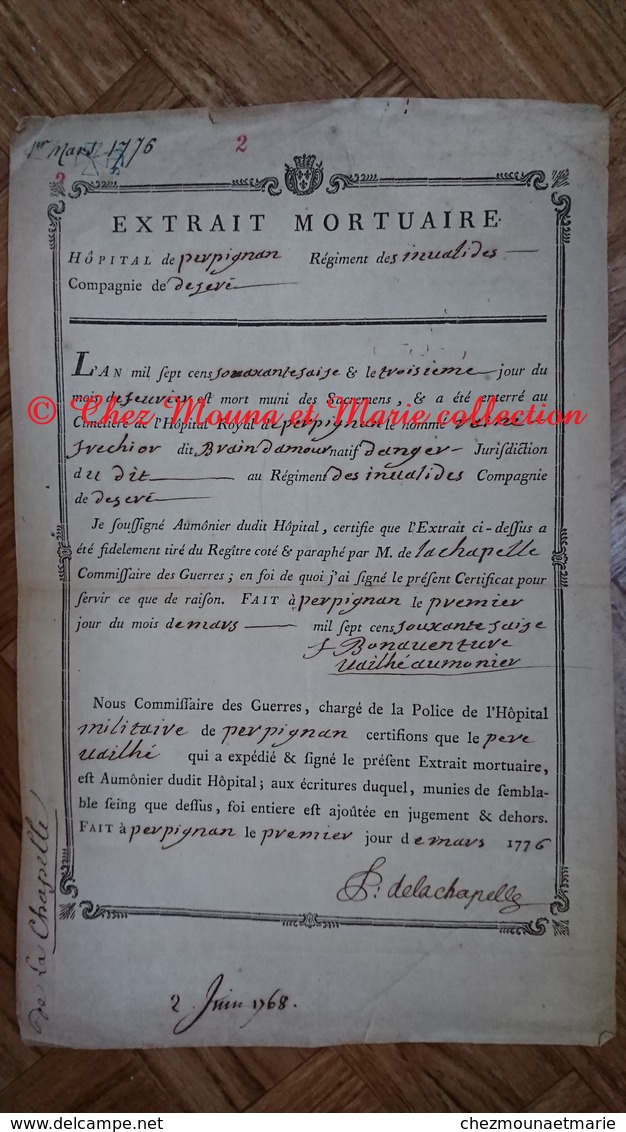 1er Mars 1776
2
2
EXTRAIT MORTUAIRE.
HÔPITAL de perpignan Régiment des inualides
Compagnie de deseré
L'AN mil sept cens souaxante saise & le troisieme jour du
mois de feuvrier est mort muni des Sacremens, & a été enterré au
© Chez Mouna et Marie collection
Cimetiere de l'Hôpital Royal de perpignan le nommé
dit Brain damour natif danger Jurisdiction
du dit au Régiment des inualides Compagnie
de deseré
Je soussigné Aumônier dudit Hôpital, certifie que l'Extrait ci-dessus a
été fidelement tiré du Regître coté & paraphé par M. de lachapelle
Commissaire des Guerres ; en foi de quoi j'ai signé le présent Certificat pour
servir ce que de raison. FAIT à perpignan le premier
jour du mois de mars mil sept cens souxante saise
f Bonauenture
uailhé aumonier
Nous Commissaire des Guerres, chargé de la Police de l'Hôpital
militaire de perpignan certifions que le pere
uailhé qui a expédié & signé le présent Extrait mortuaire,
est Aumônier dudit Hôpital ; aux écritures duquel, munies de sembla-
ble seing que dessus, foi entiere est ajoûtée en jugement & dehors.
FAIT à perpignan le premier jour de mars 1776
delachapelle
de La Chapelle
2 Juin 1768.
www.delcampe.net
chezmounaetmarie